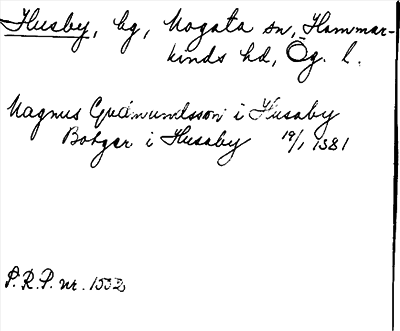 Husby, by, Mogata sn, Hammar-
kinds hd, Ög. l.
Magnus Gudmundsson i Husaby
Botger i Husaby 19/1 1381
P.R.P. nr. 1552